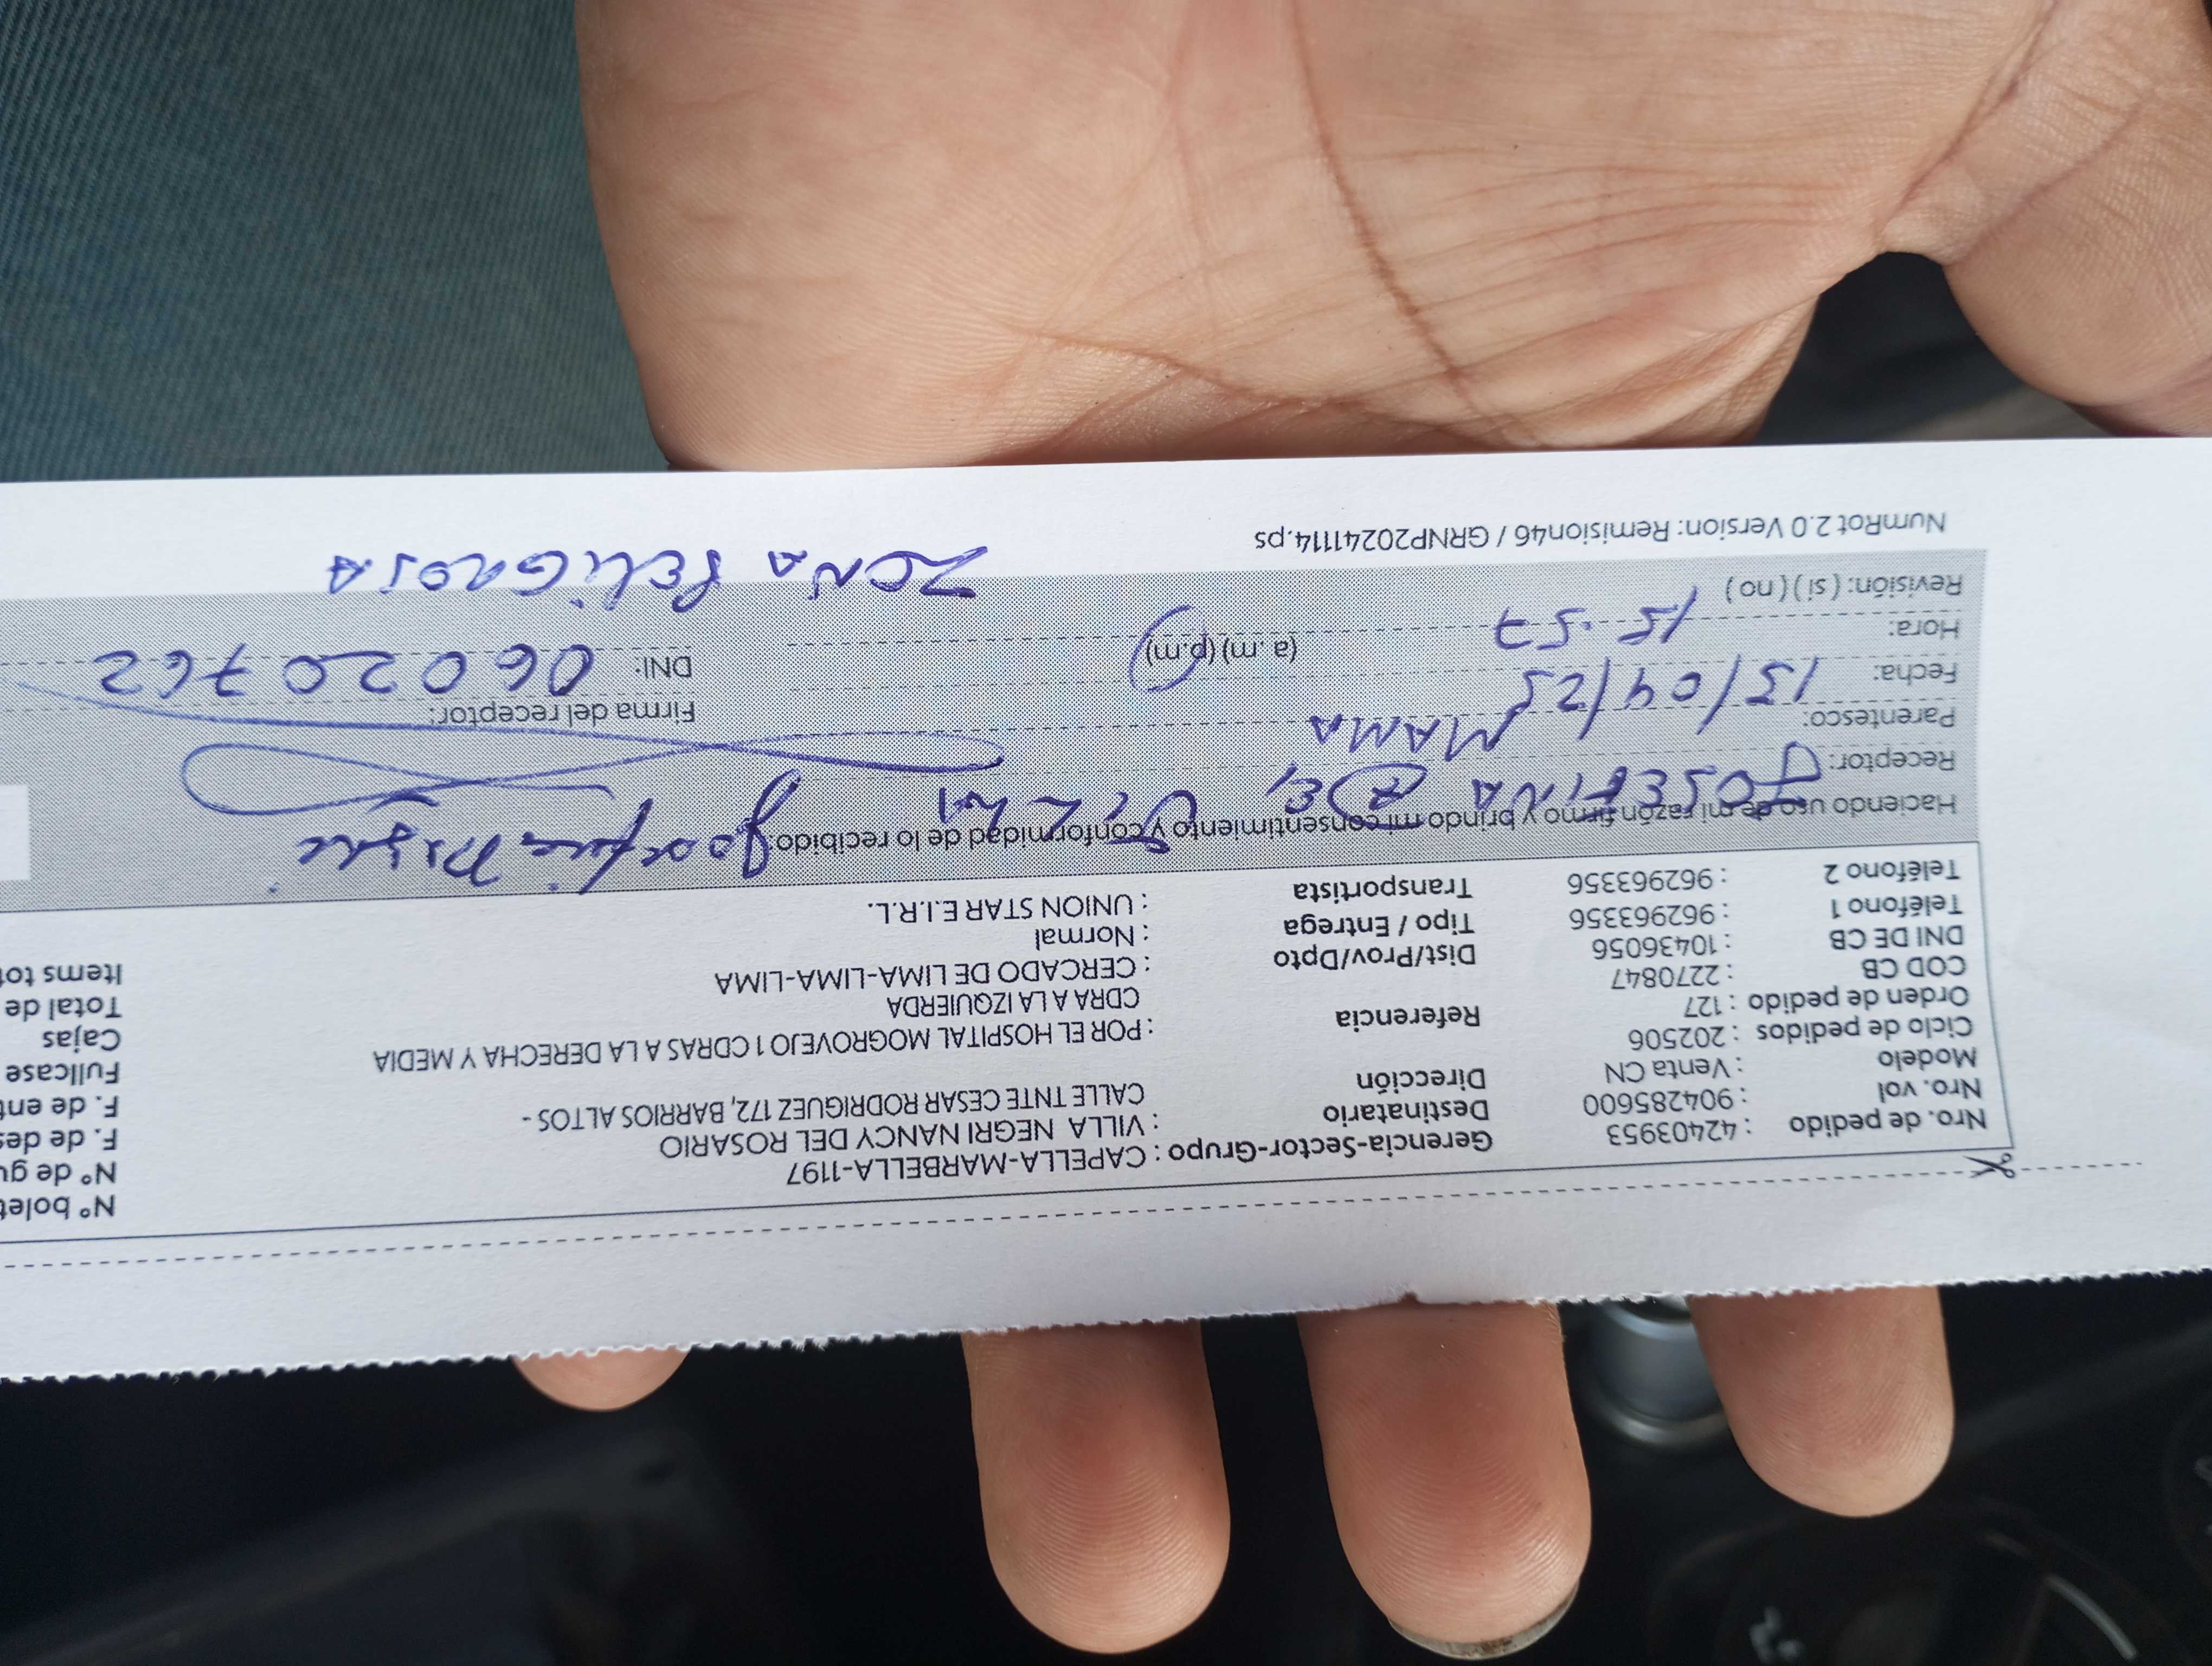 Nº bolet
Gerencia-Sector-Grupo : CAPELLA-MARBELLA-1197
Nº de gu
Nro. de pedido : 42403953
Destinatario : VILLA NEGRI NANCY DEL ROSARIO
F. de des
Nro. vol : 904285600
Dirección CALLE TNTE CESAR RODRIGUEZ 172, BARRIOS ALTOS -
F. de ent
Modelo : Venta CN
Fullcase
Ciclo de pedidos : 202506
Referencia : POR EL HOSPITAL MOGROVEJO 1 CDRAS A LA DERECHA Y MEDIA
CDRA A LA IZQUIERDA
Cajas
Orden de pedido : 127
Total de
COD CB : 2270847
Dist/Prov/Dpto : CERCADO DE LIMA-LIMA-LIMA
Items tot
DNI DE CB : 10436056
Tipo / Entrega : Normal
Teléfono 1 : 962963356
Transportista : UNION STAR E.I.R.L.
Teléfono 2 : 962963356
Haciendo uso de mi razón firmo y brindo mi consentimiento y conformidad de lo recibido:
Receptor: JOSEFINA
Parentesco: MAMA
Firma del receptor:
Fecha: 13/04/25
DNI: 06020762
Hora: 15:57 (a. m) (p.m)
Revisión: ( si ) ( no )
ZONA PELIGROSA
NumRot 2.0 Version: Remision46 / GRNP20241114.ps